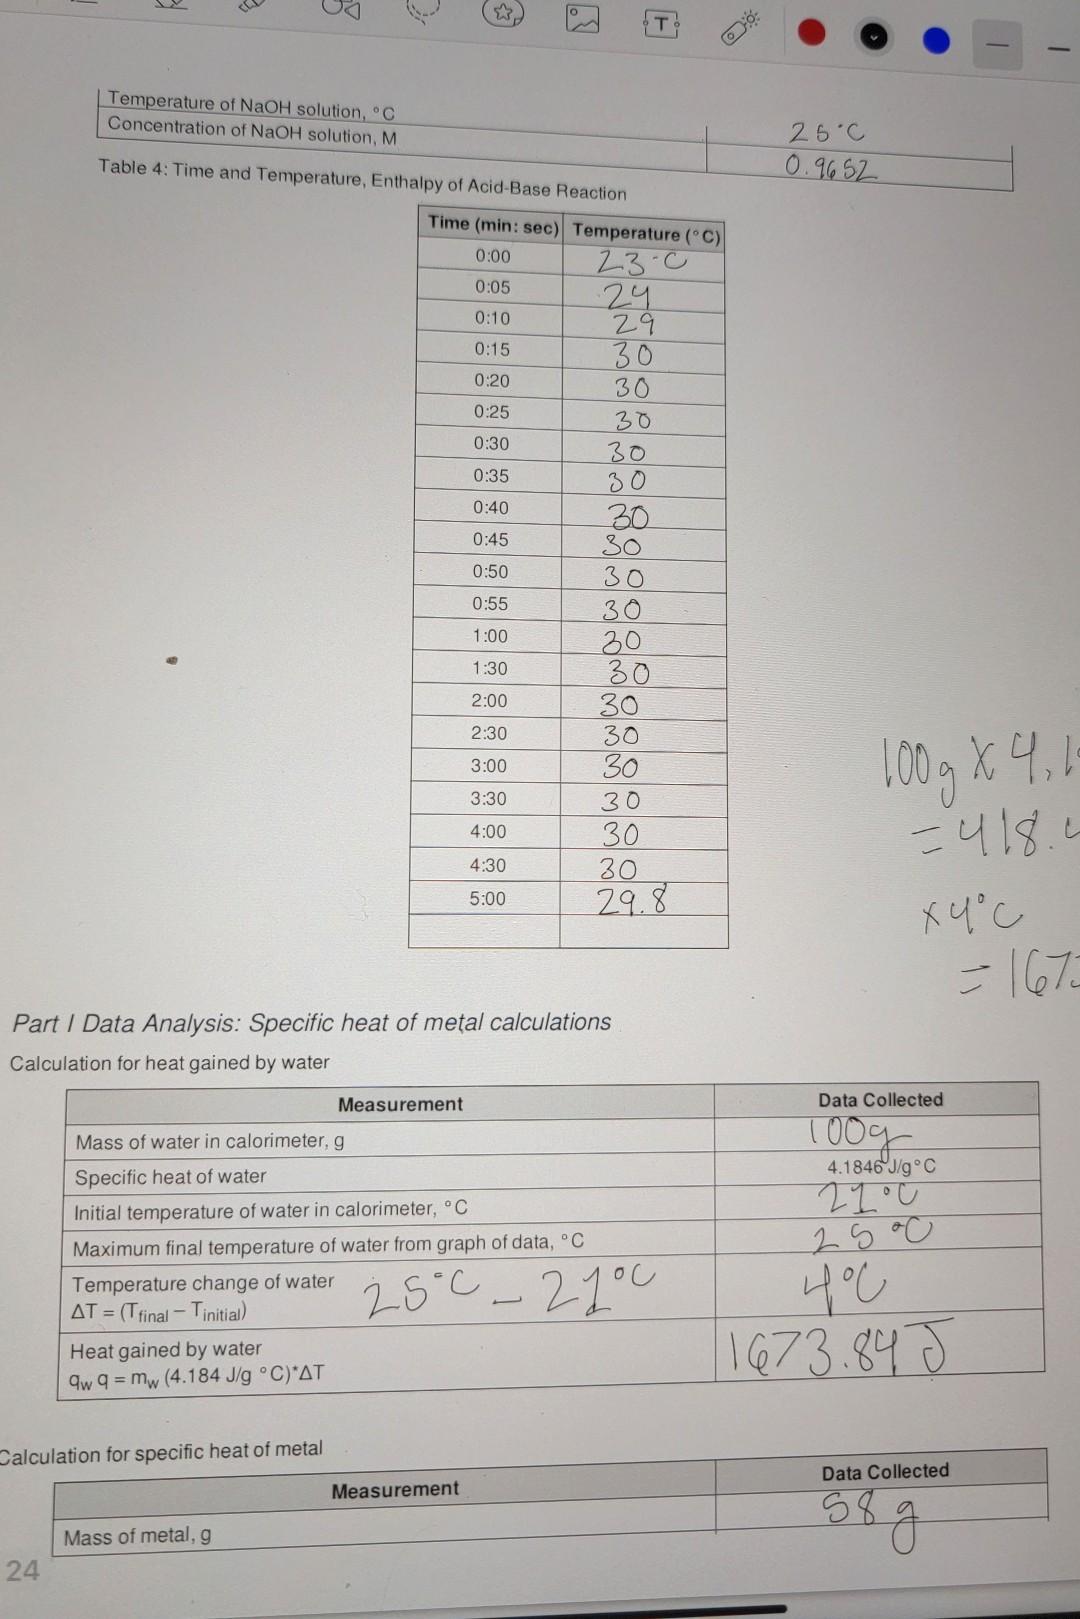 T
Temperature of NaOH solution, °C 25°C
Concentration of NaOH solution, M 0.9652
Table 4: Time and Temperature, Enthalpy of Acid-Base Reaction
Time (min: sec) Temperature (°C)
0:00 23°C
0:05 24
0:10 29
0:15 30
0:20 30
0:25 30
0:30 30
0:35 30
0:40 30
0:45 30
0:50 30
0:55 30
1:00 30
1:30 30
2:00 30
2:30 30
3:00 30
3:30 30
4:00 30
4:30 30
5:00 29.8
100g X 4.1
= 418.4
x 4°C
= 167
Part I Data Analysis: Specific heat of metal calculations
Calculation for heat gained by water
Measurement Data Collected
Mass of water in calorimeter, g 100g
Specific heat of water 4.1846 J/g°C
Initial temperature of water in calorimeter, °C 21°C
Maximum final temperature of water from graph of data, °C 25°C
Temperature change of water 25°C - 21°C 4°C
ΔT = (Tfinal – Tinitial)
Heat gained by water 1673.84 J
qw q = mw (4.184 J/g °C)*ΔT
Calculation for specific heat of metal
Measurement Data Collected
Mass of metal, g 58g
24